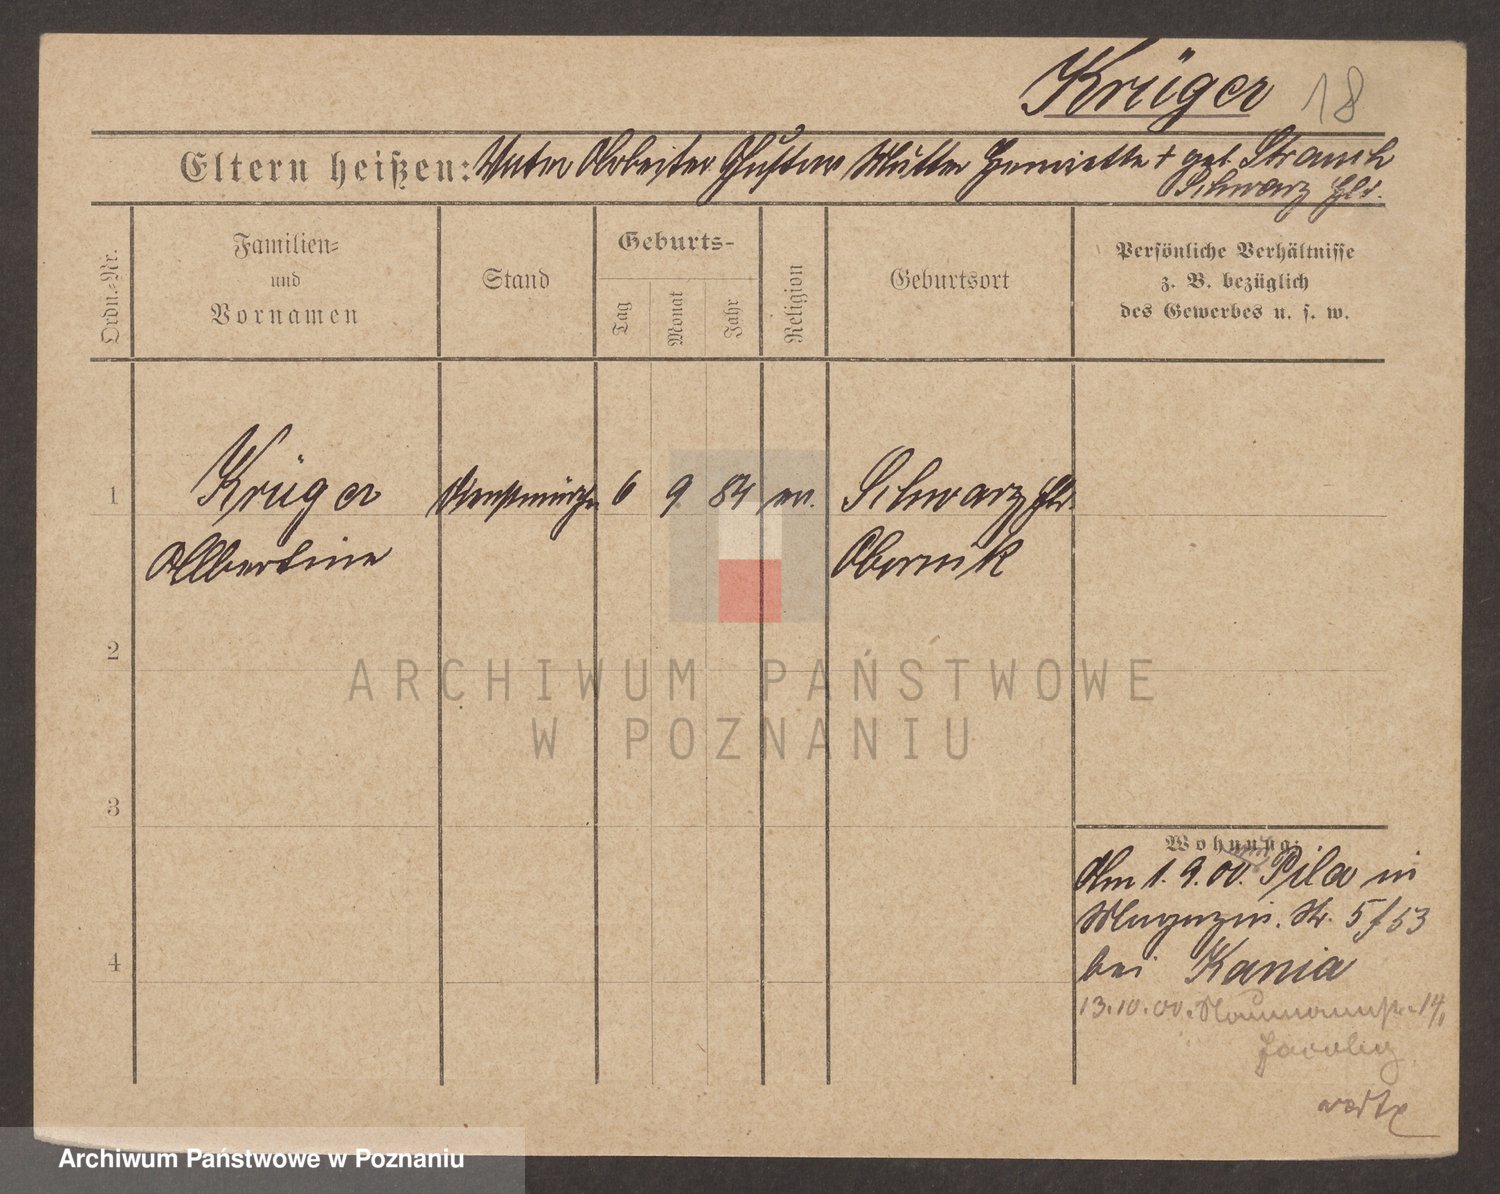 Krüger 18
Eltern heißen: Vater Arbeiter Gustav Mutter Henriette + geb. Strauch
Schwarz Hld.
Ordn.-Nr.
Familien-
und
Vornamen
Stand
Geburts-
Tag
Monat
Jahr
Religion
Geburtsort
Persönliche Verhältnisse
z. B. bezüglich
des Gewerbes u. s. w.
1 Krüger Dienstmädch. 6 9 84 ev. Schwarz Hld.
Albertine Obornik
2
3
4
Wohnung:
Am 1. 9. 00. Pila in
Magazin. Str. 5 / 53
bei Kania
13.10.00. Naumannstr. 14/1
ARCHIWUM PAŃSTWOWE
W POZNANIU
Archiwum Państwowe w Poznaniu